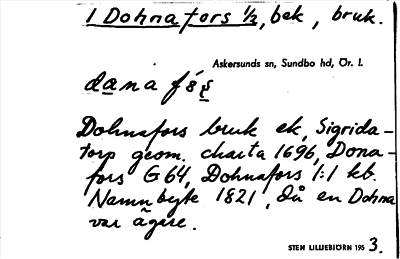 1 Dohnafors 1/2, bek, bruk.
Askersunds sn, Sundbo hd, Ör. l.
dana fós
Dohnafors bruk ek, Sigrida-
torp geom. charta 1696, Dona-
fors G 64, Dohnafors 1:1 kb.
Namnbyte 1821, då en Dohna
var ägare.
STEN LILLIEBJÖRN 1953.